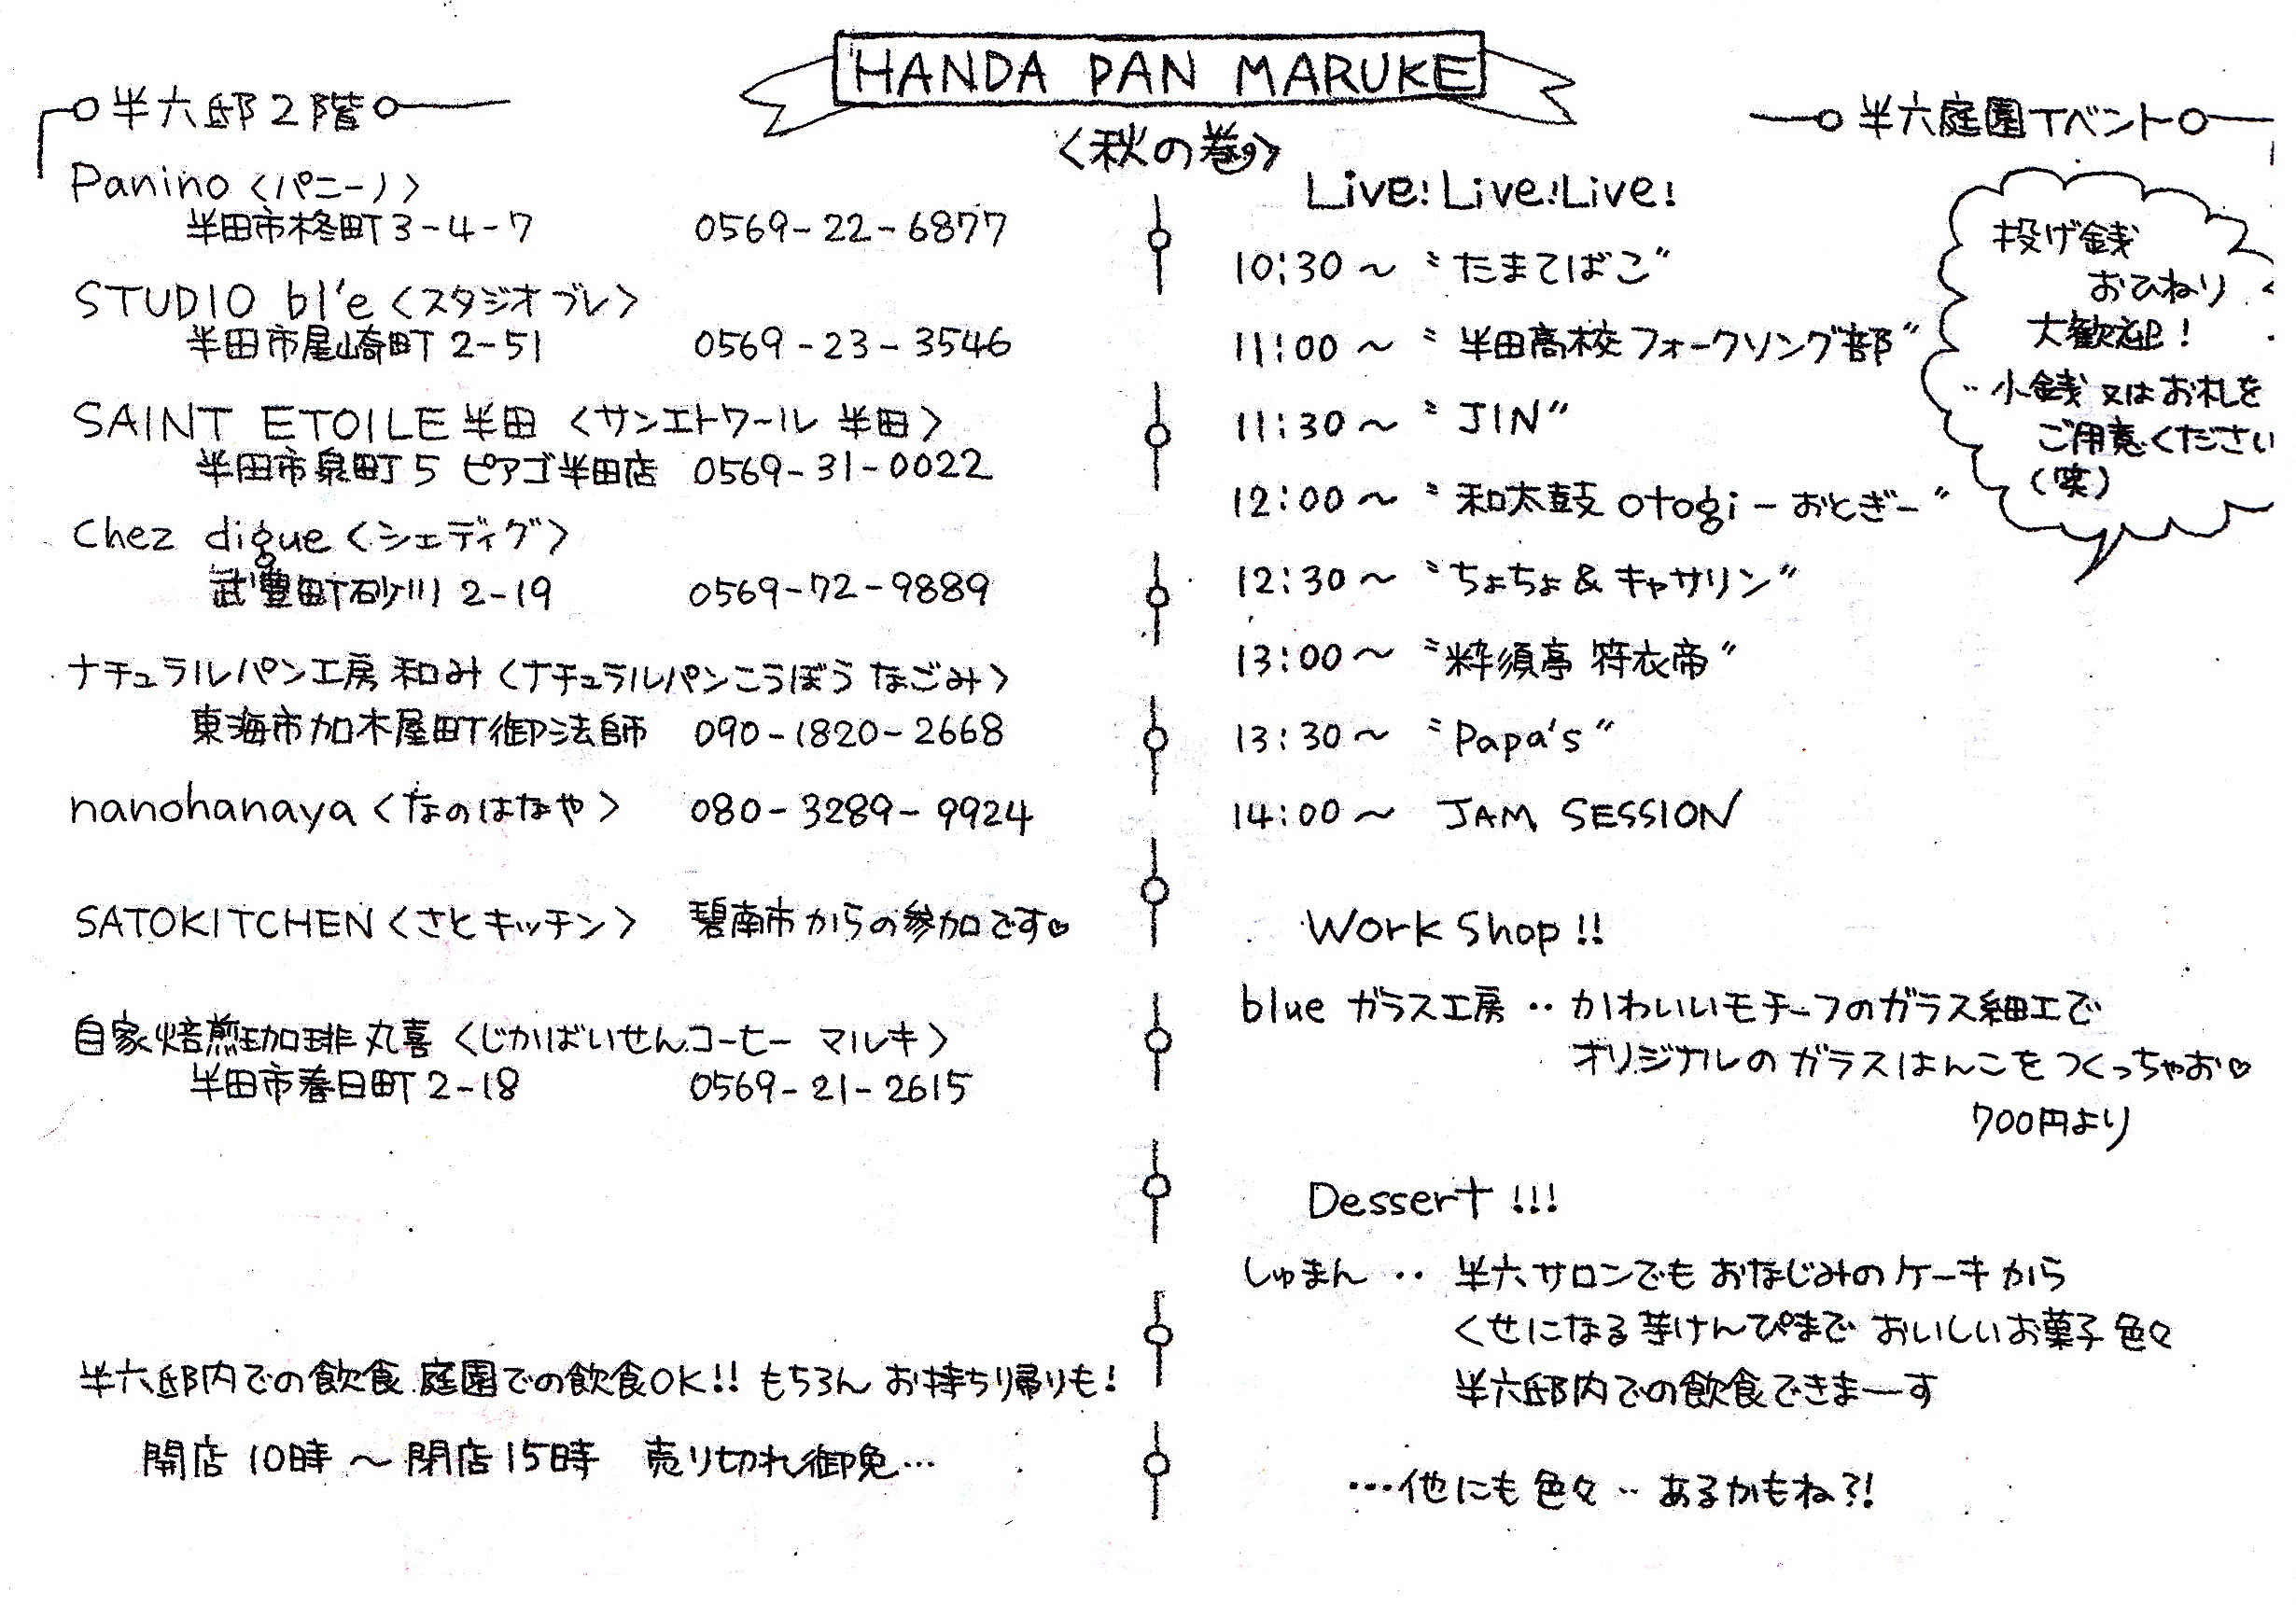 HANDA PAN MARUKE
<秋の巻>
半六邸2階
Panino <パニーノ>
半田市柊町3-4-7 0569-22-6877
STUDIO bl'e <スタジオブレ>
半田市尾崎町2-51 0569-23-3546
SAINT ETOILE半田 <サンエトワール 半田>
半田市泉町5 ピアゴ半田店 0569-31-0022
Chez digue <シェディグ>
武豊町砂川2-19 0569-72-9889
ナチュラルパン工房 和み <ナチュラルパンこうぼう なごみ>
東海市加木屋町御法師 090-1820-2668
nanohanaya <なのはなや> 080-3289-9924
SATOKITCHEN <さとキッチン> 碧南市からの参加です♡
自家焙煎珈琲 丸喜 <じかばいせんコーヒー マルキ>
半田市春日町2-18 0569-21-2615
半六邸内での飲食 庭園での飲食OK!! もちろん お持ち帰りも!
開店10時〜閉店15時 売り切れ御免…
半六庭園イベント
Live! Live! Live!
10:30〜 〝たまてばこ〟
11:00〜 〝半田高校フォークソング部〟
11:30〜 〝JIN〟
12:00〜 〝和太鼓 otogi-おとぎ-〟
12:30〜 〝ちょちょ&キャサリン〟
13:00〜 〝粋須亭 符衣帝〟
13:30〜 〝Papa's〟
14:00〜 JAM SESSION
投げ銭
おひねり
大歓迎!
‥小銭 又はお札を
ご用意ください
(笑)
Work Shop!!
blue ガラス工房‥かわいいモチーフのガラス細工で
オリジナルのガラスはんこをつくっちゃお♡
700円より
Dessert!!!
しゅまん‥ 半六サロンでもおなじみのケーキから
くせになる芋けんぴまで おいしいお菓子色々
半六邸内での飲食できまーす
…他にも色々‥あるかもね?!